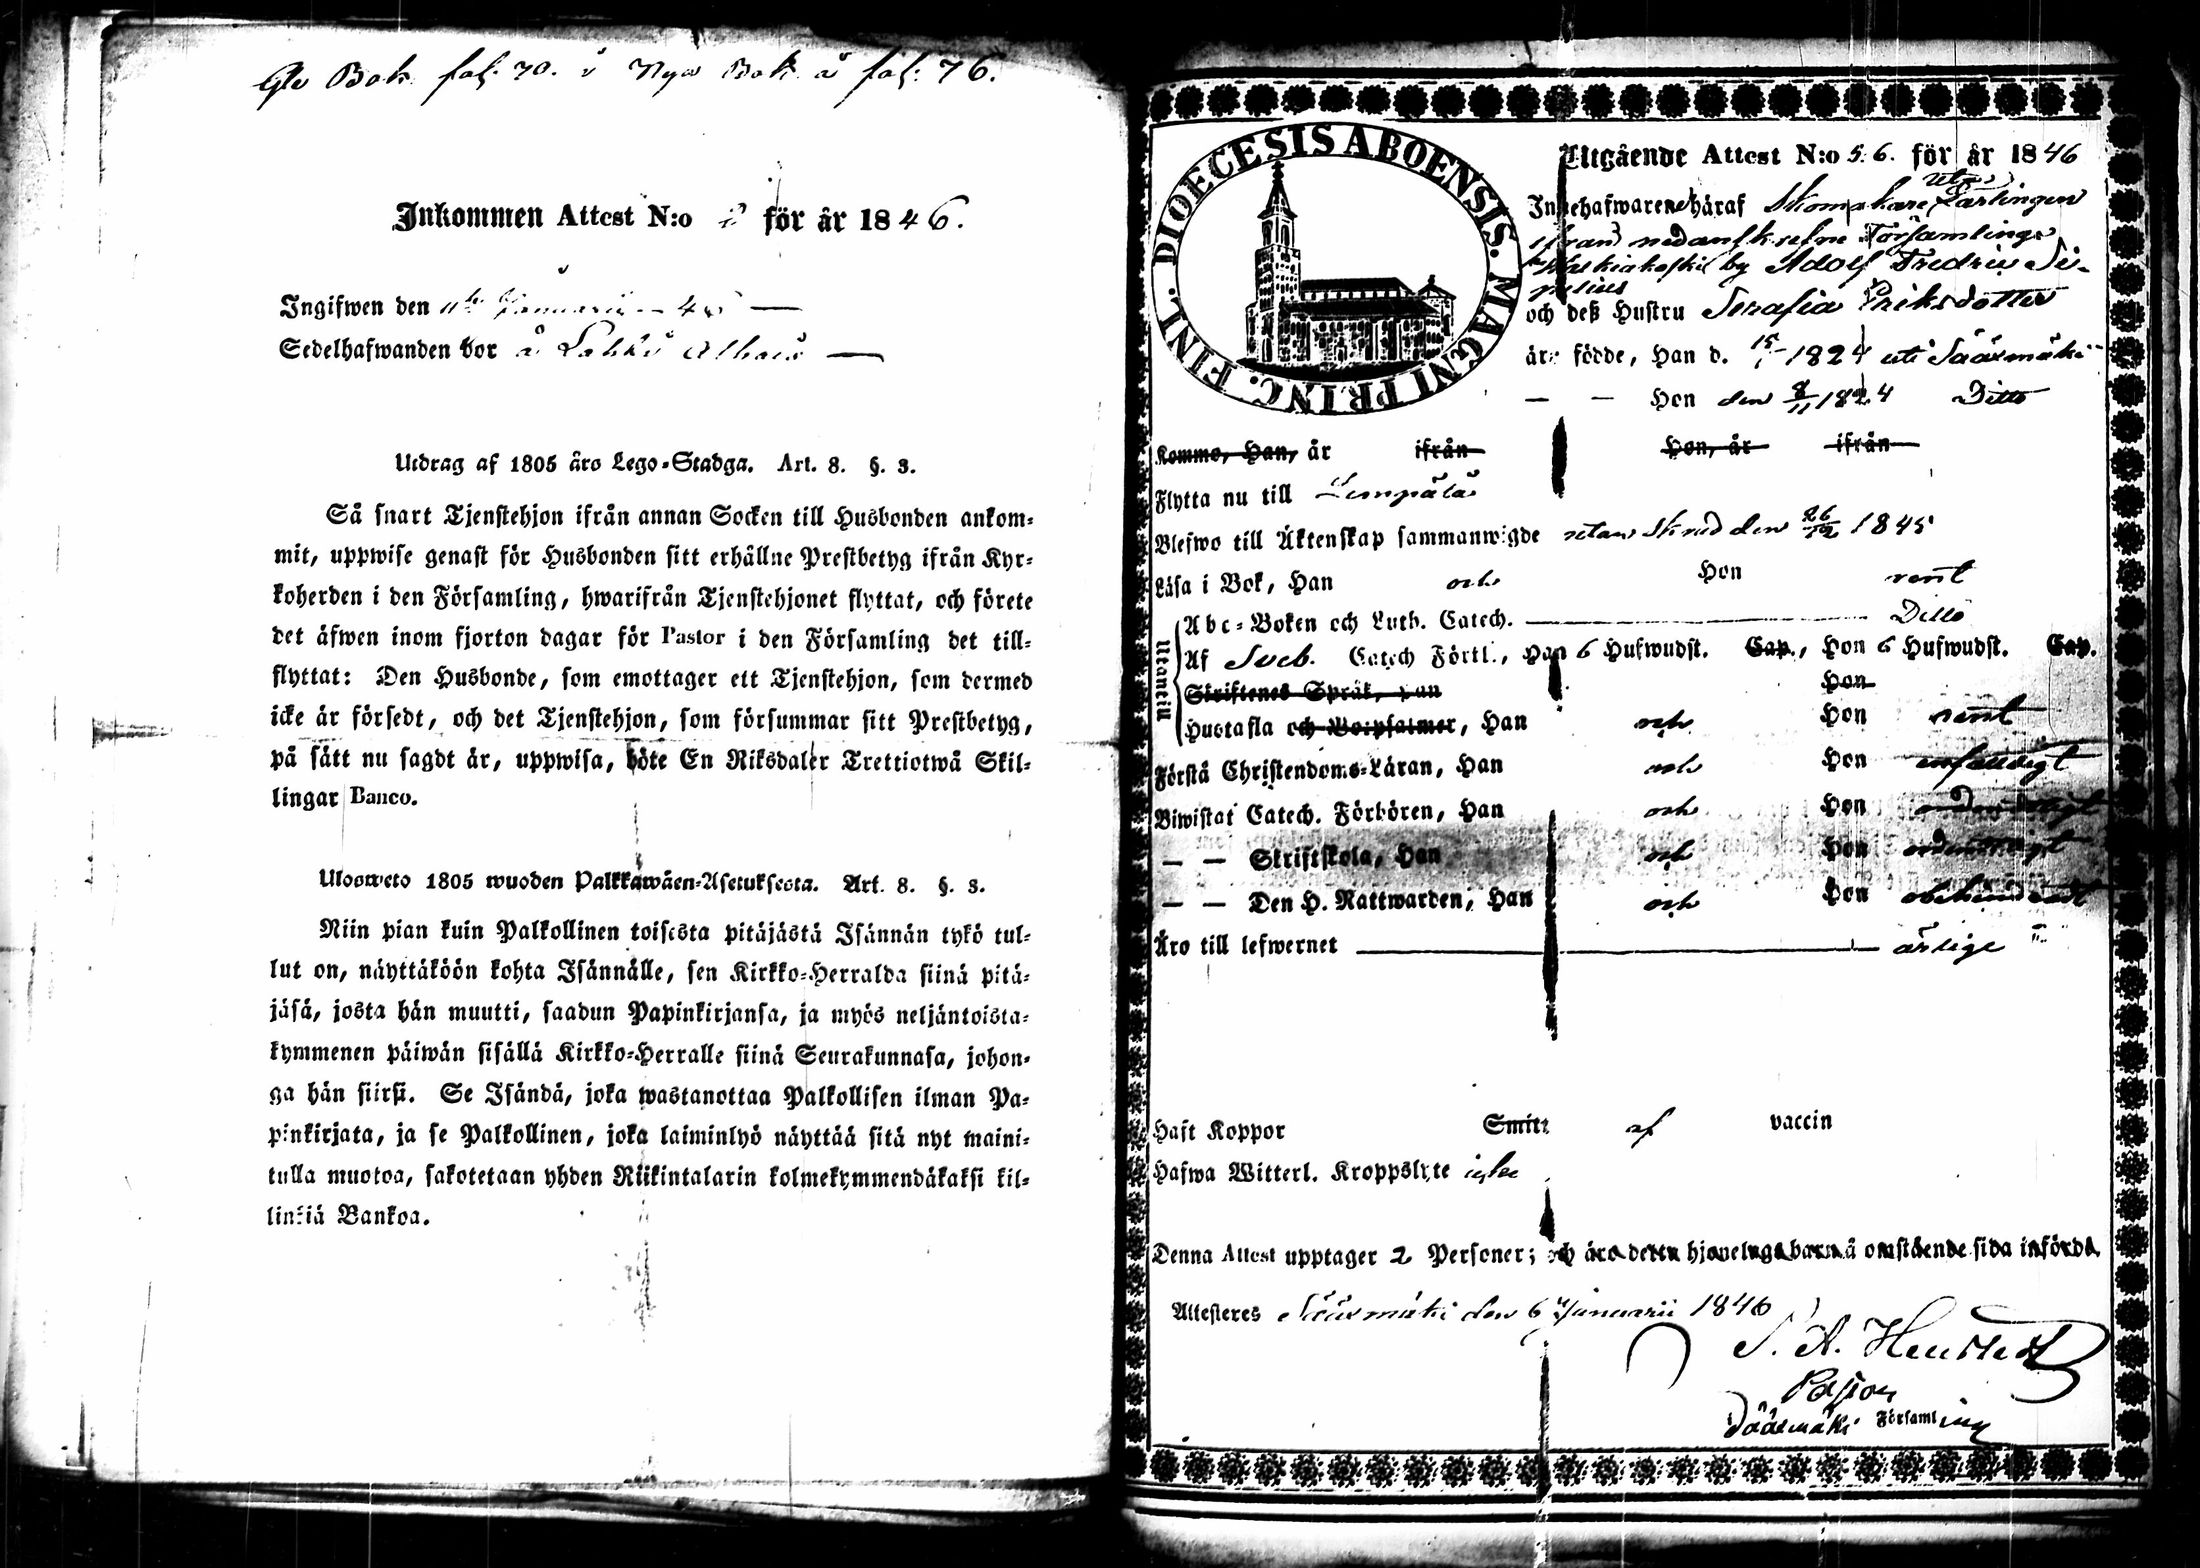 Gle Bok fol. 70. i Nya Bok å fol: 76.
Inkommen Attest N:o 2 för år 1846.
Ingifwen den 11te Januarii 46
Sedelhafwanden bor å Lahki Allais
Utdrag af 1805 års Lego-Stadga. Art. 8. §. 3.
Så snart Tjenstehjon ifrån annan Socken till Husbonden ankom-
mit, uppwise genast för Husbonden sitt erhållne Prestbetyg ifrån Kyr-
koherden i den Församling, hwarifrån Tjenstehjonet flyttat, och förete
det äfwen inom fjorton dagar för Pastor i den Församling det till-
flyttat: Den Husbonde, som emottager ett Tjenstehjon, som dermed
icke är försedt, och det Tjenstehjon, som försummar sitt Prestbetyg,
på sätt nu sagdt är, uppwisa, böte En Riksdaler Trettiotwå Skil-
lingar Banco.
Ulosweto 1805 wuoden Palkkawäen-Asetuksesta. Art. 8. §. 3.
Niin pian kuin Palkollinen toisesta pitäjästä Isännän tykö tul-
lut on, näyttäköön kohta Isännälle, sen Kirkko-Herralda siinä pitä-
jäsä, josta hän muutti, saadun Papinkirjansa, ja myös neljäntoista-
kymmenen päiwän sisällä Kirkko-Herralle siinä Seurakunnasa, johon-
ga hän siirsi. Se Isändä, joka wastanottaa Palkollisen ilman Pa-
pinkirjata, ja se Palkollinen, joka laiminlyö näyttää sitä nyt maini-
tulla muotoa, sakotetaan yhden Riikintalarin kolmekymmendäkaksi kil-
linkiä Bankoa.
DIOECESIS ABOENSIS. MAGNI PRINC. FINL.
Utgående Attest N:o 5. 6. för år 1846
Innehafwarene häraf Skomakare Lärlingen uti
ifrån nedanskrefne Församlings
by Adolf Fredric Si-
pelius
och deß Hustru Serafia Eriksdotter
äro födde, Han d. 15/1 1824 uti Sääxmäki
— — Hon den 8/11 1824 Ditto
Komme, Han, år ifrån Hon, år ifrån
Flytta nu till Lempälä
Blefwo till Äktenskap sammanwigde utan Skrud den 26/12 1845
Läsa i Bok, Han och Hon rent
Utantill
Abc-Boken och Luth. Catech. Ditto
Af Sveb. Catech Förkl., Han 6 Hufwudst. Cap., Hon 6 Hufwudst. Cap.
Skriftenes Språk, Han Hon
Hustafla och Botpsalmer, Han och Hon rent
Förstå Christendoms-Läran, Han och Hon enfaldigt
Biwistat Catech. Förhören, Han och Hon ordentligt
— — Skriftskola, Han och Hon ordentligt
— — Den H. Nattwarden, Han och Hon obehindradt
Äro till lefwernet ärlige
Haft Koppor Smitt af vaccin
Hafwa Witterl. Kroppslyte icke
Denna Attest upptager 2 Personer; och äro deras hjonelags barn å omstående sida införda.
Attesteres Sääxmäki den 6 Januarii 1846
Pastor
Sääxmäki Församling